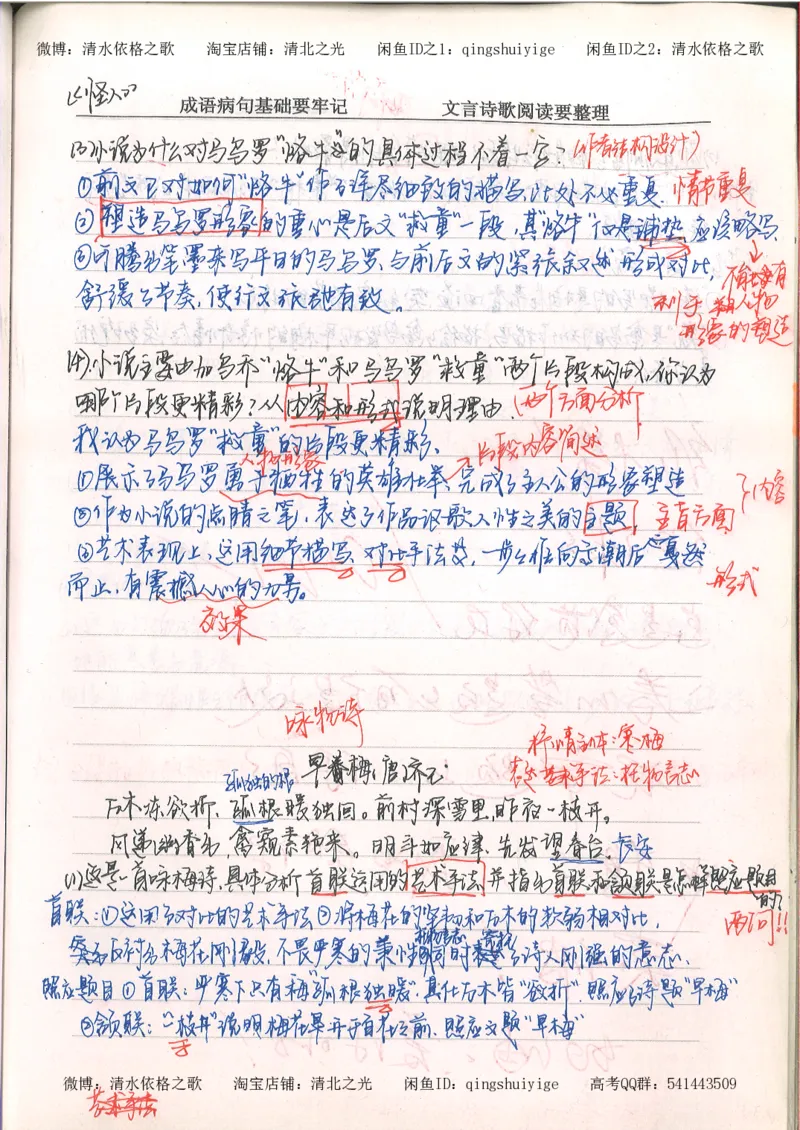 微博：清水依格之歌 淘宝店铺：清北之光 闲鱼ID之1：qingshuiyige 闲鱼ID之2：清水依格之歌
成语病句基础要牢记 文言诗歌阅读要整理
(3)小说为什么对马乌罗“烙牛”的具体过程不着一字？(作者结构设计)
①前文已对如何“烙牛”作了详尽细致的描写，此处不必重复. 情节重复
②塑造马乌罗形象的重心是后文“救童”一段，其“烙牛”仅是铺垫，应该略写.
③可腾出笔墨来写平日的马乌罗，与前后文的紧张叙述形成对比，
舒缓了节奏，使行文张弛有致。
利于 人物
形象的塑造
(4).小说主要由加乌乔“烙牛”和马乌罗“救童”两个片段构成，你认为
哪个片段更精彩？从内容和形式说明理由.(两个方面分析
我认为马乌罗“救童”的片段更精彩. 片段内容简述
人物形象
①展示了马乌罗勇于牺牲的英雄壮举，完成了主人公的形象塑造
}内容
②作为小说的点睛之笔，表达了作品讴歌人性之美的主题. 主旨方面
③艺术表现上，运用细节描写、对比手法等，一步步推向高潮后戛然
而止，有震撼人心的力量。 形式
效果
咏物诗
抒情主体：寒梅
早梅(唐)齐己 表达艺术手法：托物言志
孤独的根
万木冻欲折，孤根暖独回。前村深雪里，昨夜一枝开。
风递幽香出，禽窥素艳来。明年如应律，先发望春台。长安
(1)这是一首咏梅诗，具体分析首联运用的艺术手法并指出首联和颔联是怎样照应题目的？
两问!!
首联：①运用了对比的艺术手法②将梅花的坚韧和万木的软弱相对比，
突出反衬出梅花刚毅、不畏严寒的秉性同时表达了诗人刚强的意志.
托物言志
照应题目①首联：严寒下只有梅“孤根独暖”，其他万木皆“欲折”.照应了诗题“早梅”
②颔联：“一枝开”说明梅花早开于百花之前，照应文题“早梅”
微博：清水依格之歌 淘宝店铺：清北之光 闲鱼ID：qingshuiyige 高考QQ群：541443509
艺术手法